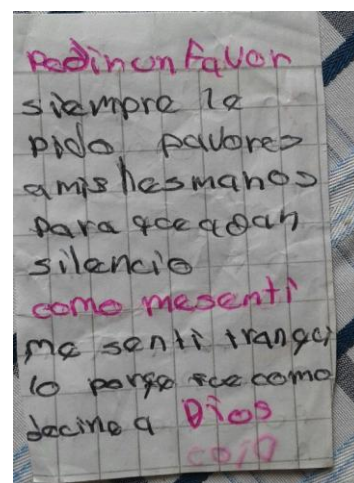 Pedin un Favor
siempre le
pido pavores
amis hesmanos
para qce agan
silencio
como mesenti
me senti tranqci
lo porqe fce como
decine a Dios